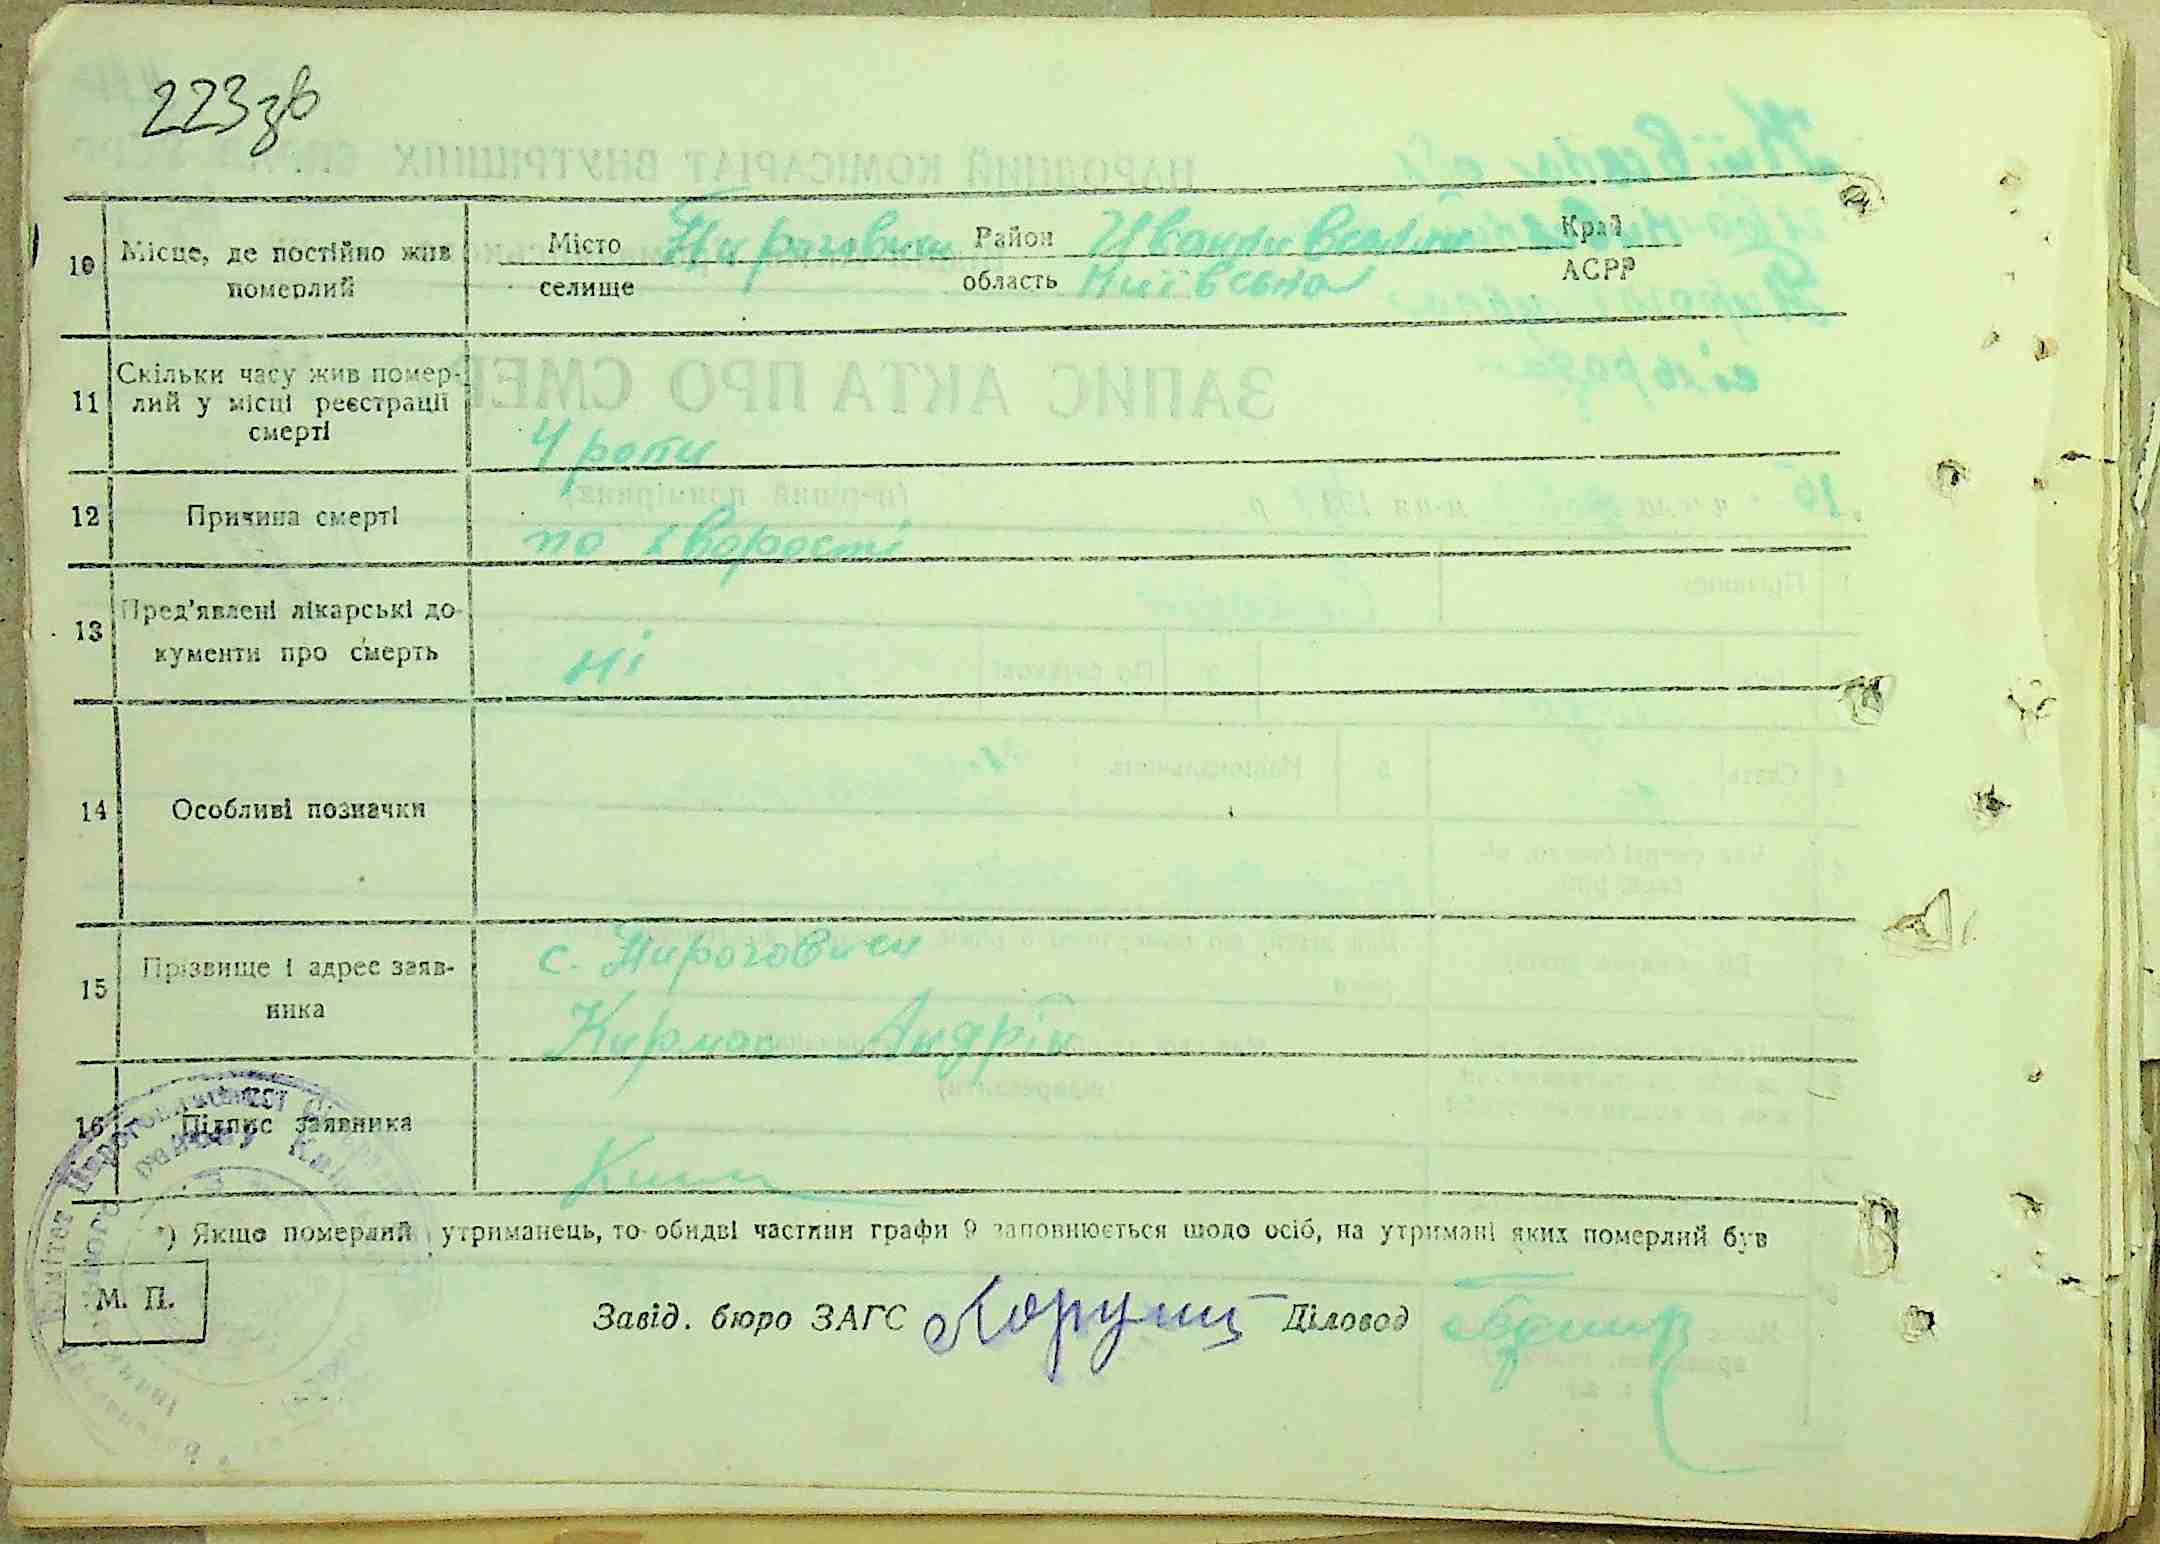 223зв
10 Місце, де постійно жив померлий
Місто селище Пироговичи Район Иванківський Край
область Київська АСРР
11 Скільки часу жив помер-
лий у місці реєстрації
смерті
4 роки
12 Причина смерті по хворості
13 Пред'явлені лікарські до-
кументи про смерть
ні
14 Особливі позначки
15 Прізвище і адрес заяв-
ника
с. Пироговичи
Кирман Андрій
16 Підпис заявника
*) Якщо померлий утриманець, то обидві частини графи 9 заповнюється щодо осіб, на утримані яких померлий був
М. П.
Завід. бюро ЗАГС Діловод